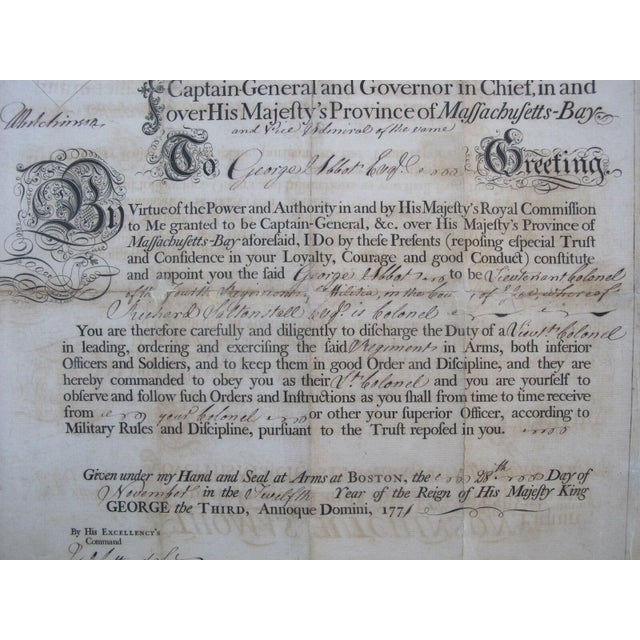 Captain-General and Governor in Chief, in and
over His Majesty's Province of Massachusetts-Bay
and Vice Admiral of the same
Hutchinson
To George Abbot Esqr. Greeting.
By Virtue of the Power and Authority in and by His Majesty's Royal Commission
to Me granted to be Captain-General, &c. over His Majesty's Province of
Massachusetts-Bay aforesaid, I Do by these Presents (reposing especial Trust
and Confidence in your Loyalty, Courage and good Conduct) constitute
and appoint you the said George Abbot to be Lieutenant Colonel
of the Fourth Regiment of Militia, in the of Essex, whereof
Richard Saltonstall Esqr. is Colonel
You are therefore carefully and diligently to discharge the Duty of a Lieut. Colonel
in leading, ordering and exercising the said Regiment in Arms, both inferior
Officers and Soldiers, and to keep them in good Order and Discipline, and they are
hereby commanded to obey you as their Lt. Colonel and you are yourself to
observe and follow such Orders and Instructions as you shall from time to time receive
from your Colonel or other your superior Officer, according to
Military Rules and Discipline, pursuant to the Trust reposed in you.
Given under my Hand and Seal at Arms at BOSTON, the 28th Day of
November in the Twelfth Year of the Reign of His Majesty King
GEORGE the THIRD, Annoque Domini, 1771
By His EXCELLENCY's
Command